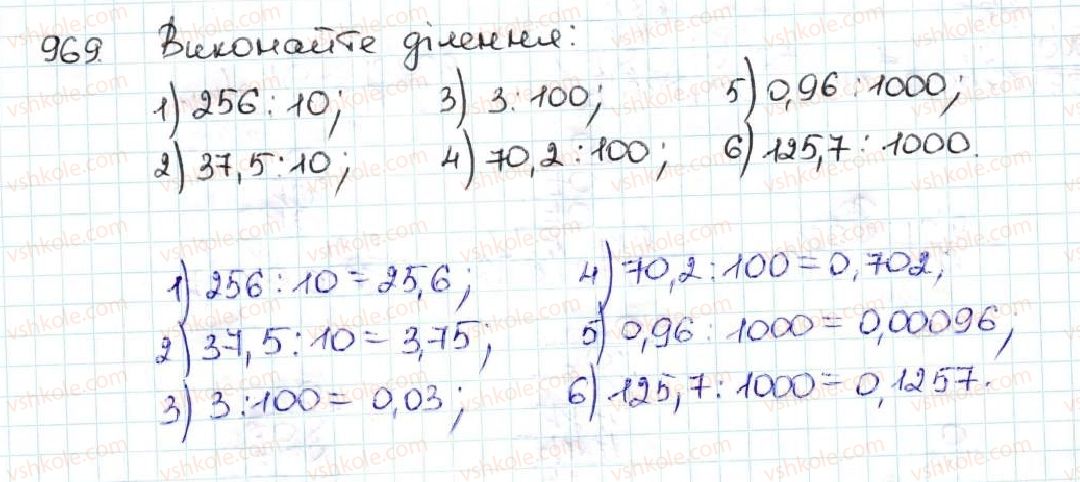 969. Виконайте ділення:
1) 256 : 10; 3) 3 : 100; 5) 0,96 : 1000;
2) 37,5 : 10; 4) 70,2 : 100; 6) 125,7 : 1000.
1) 256 : 10 = 25,6; 4) 70,2 : 100 = 0,702;
2) 37,5 : 10 = 3,75; 5) 0,96 : 1000 = 0,00096;
3) 3 : 100 = 0,03; 6) 125,7 : 1000 = 0,1257.